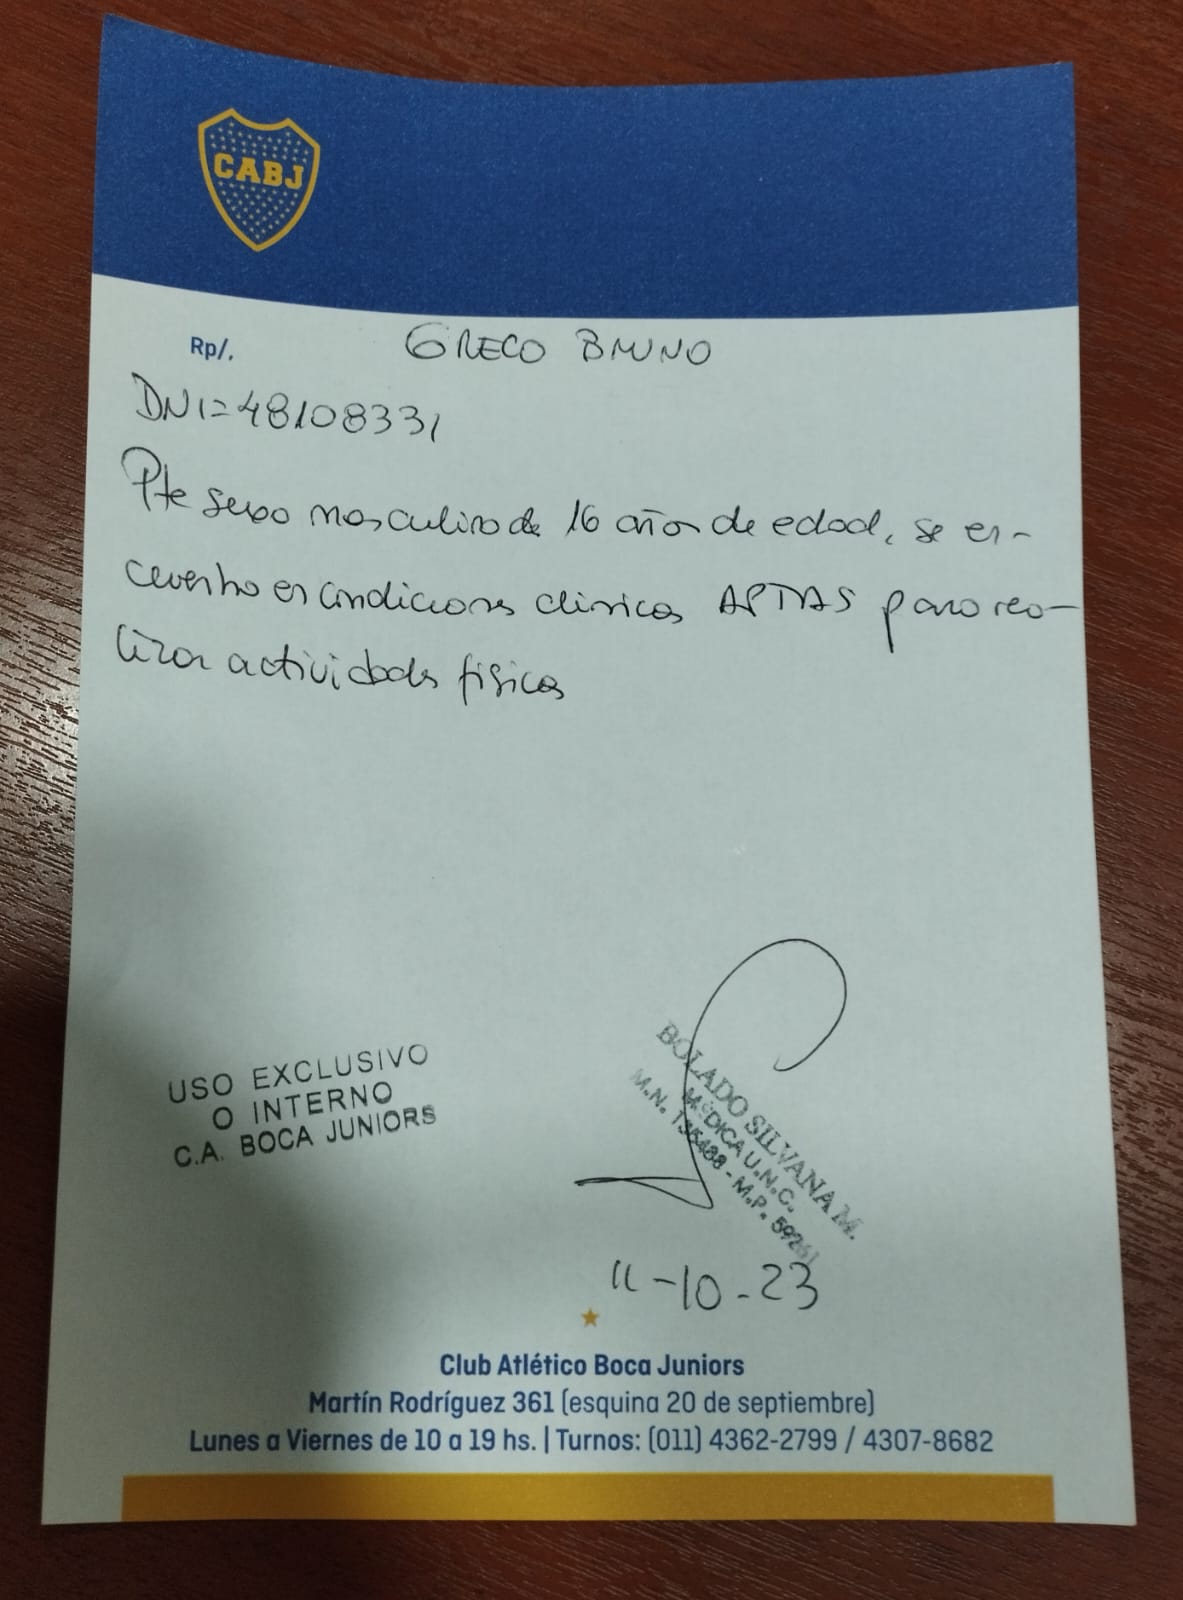 CABJ
Rp/.
GRECO BRUNO
DNI=48108331
Pte sexo masculino de 16 años de edad, se en-
cuentra en condiciones clinicas APTAS para rea-
lizar actividades fisicas
USO EXCLUSIVO
O INTERNO
C.A. BOCA JUNIORS
BOLADO SILVANA M.
MÉDICA U.N.C.
M.N. - M.P.
11-10-23
Club Atlético Boca Juniors
Martín Rodríguez 361 (esquina 20 de septiembre)
Lunes a Viernes de 10 a 19 hs. | Turnos: (011) 4362-2799 / 4307-8682